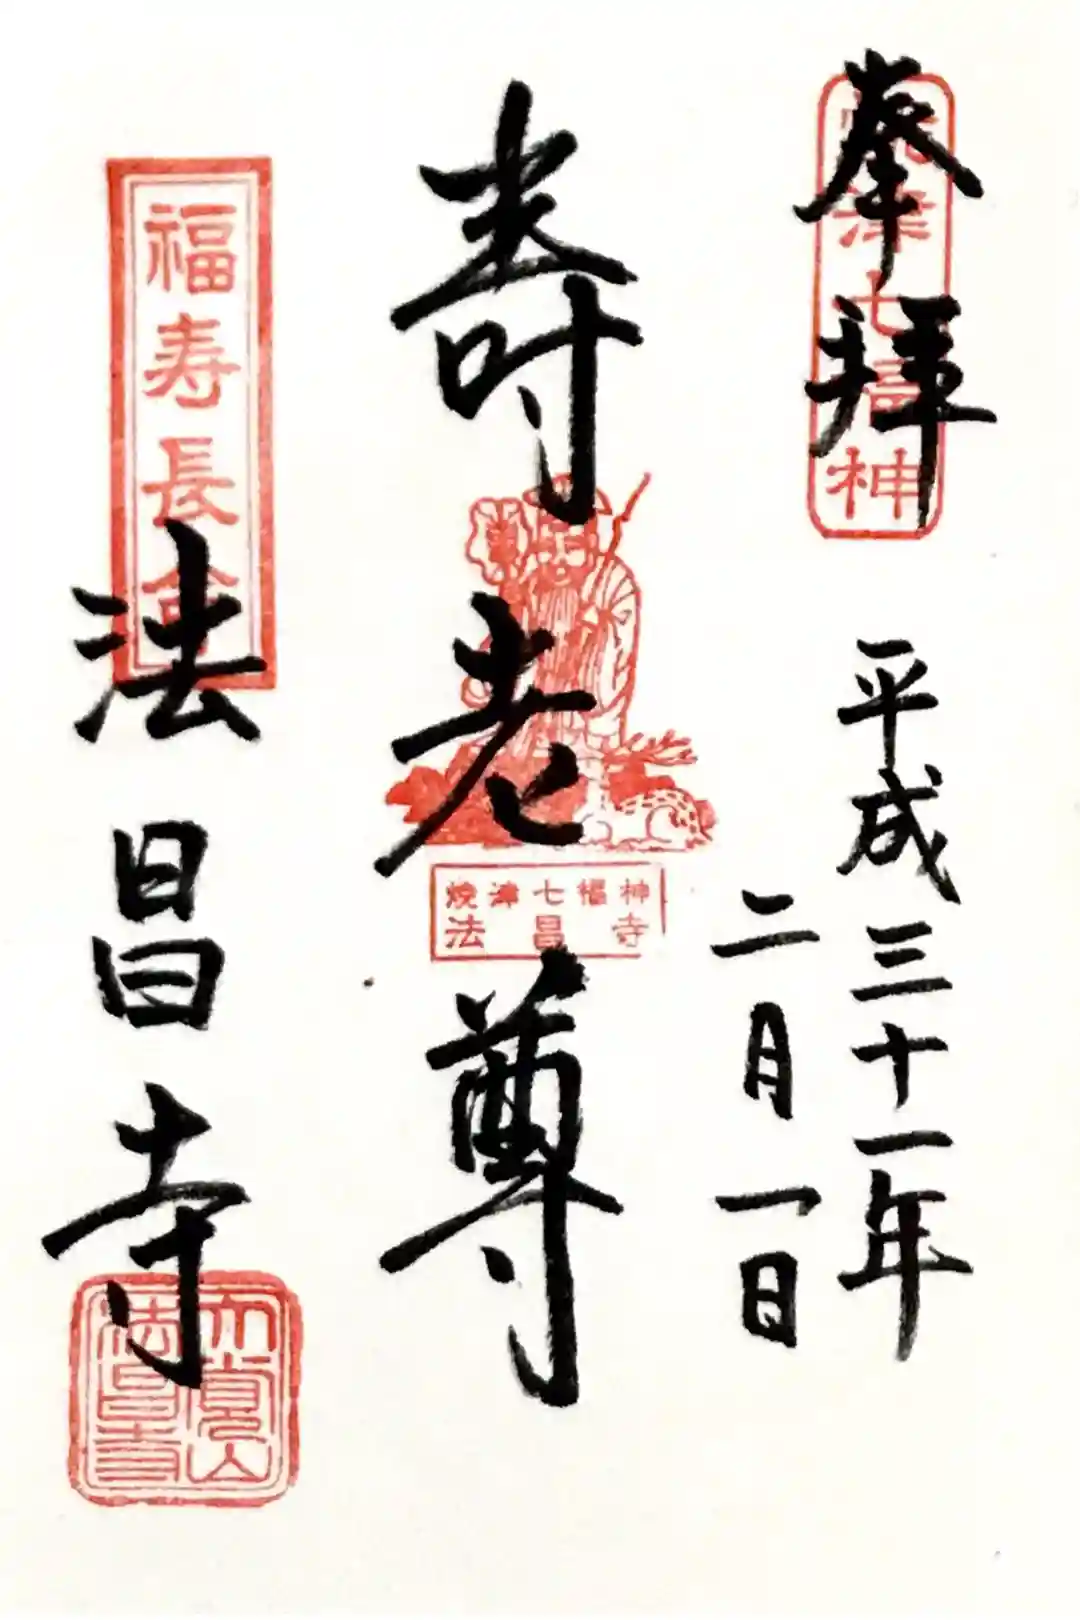 奉拝
焼津七福神
平成三十一年
二月一日
寿老尊
焼津七福神
法昌寺
福寿長命
法昌寺
法昌寺